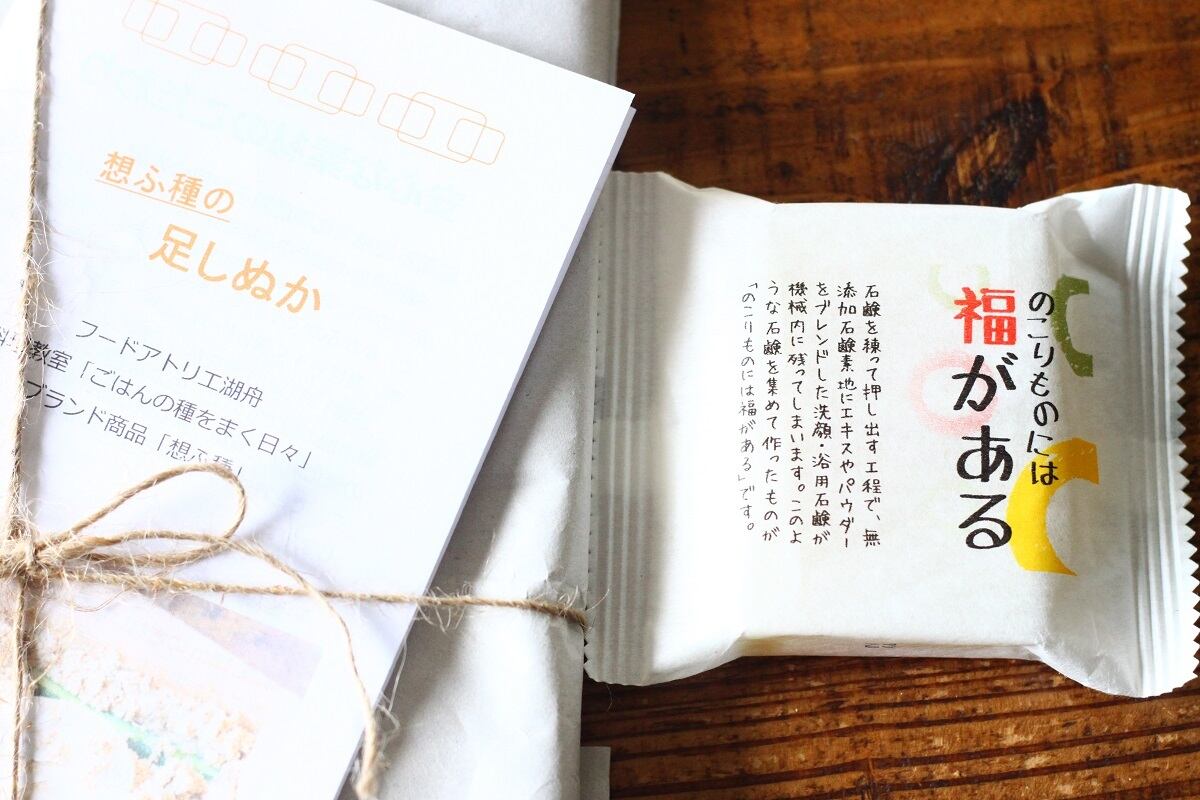 想ふ種の
足しぬか
フードアトリエ湖舟
料理教室「ごはんの種をまく日々」
ブランド商品「想ふ種」
のこりものには
福がある
石鹸を練って押し出す工程で、無
添加石鹸素地にエキスやパウダー
をブレンドした洗顔・浴用石鹸が
機械内に残ってしまいます。このよ
うな石鹸を集めて作ったものが
「のこりものには福がある」です。